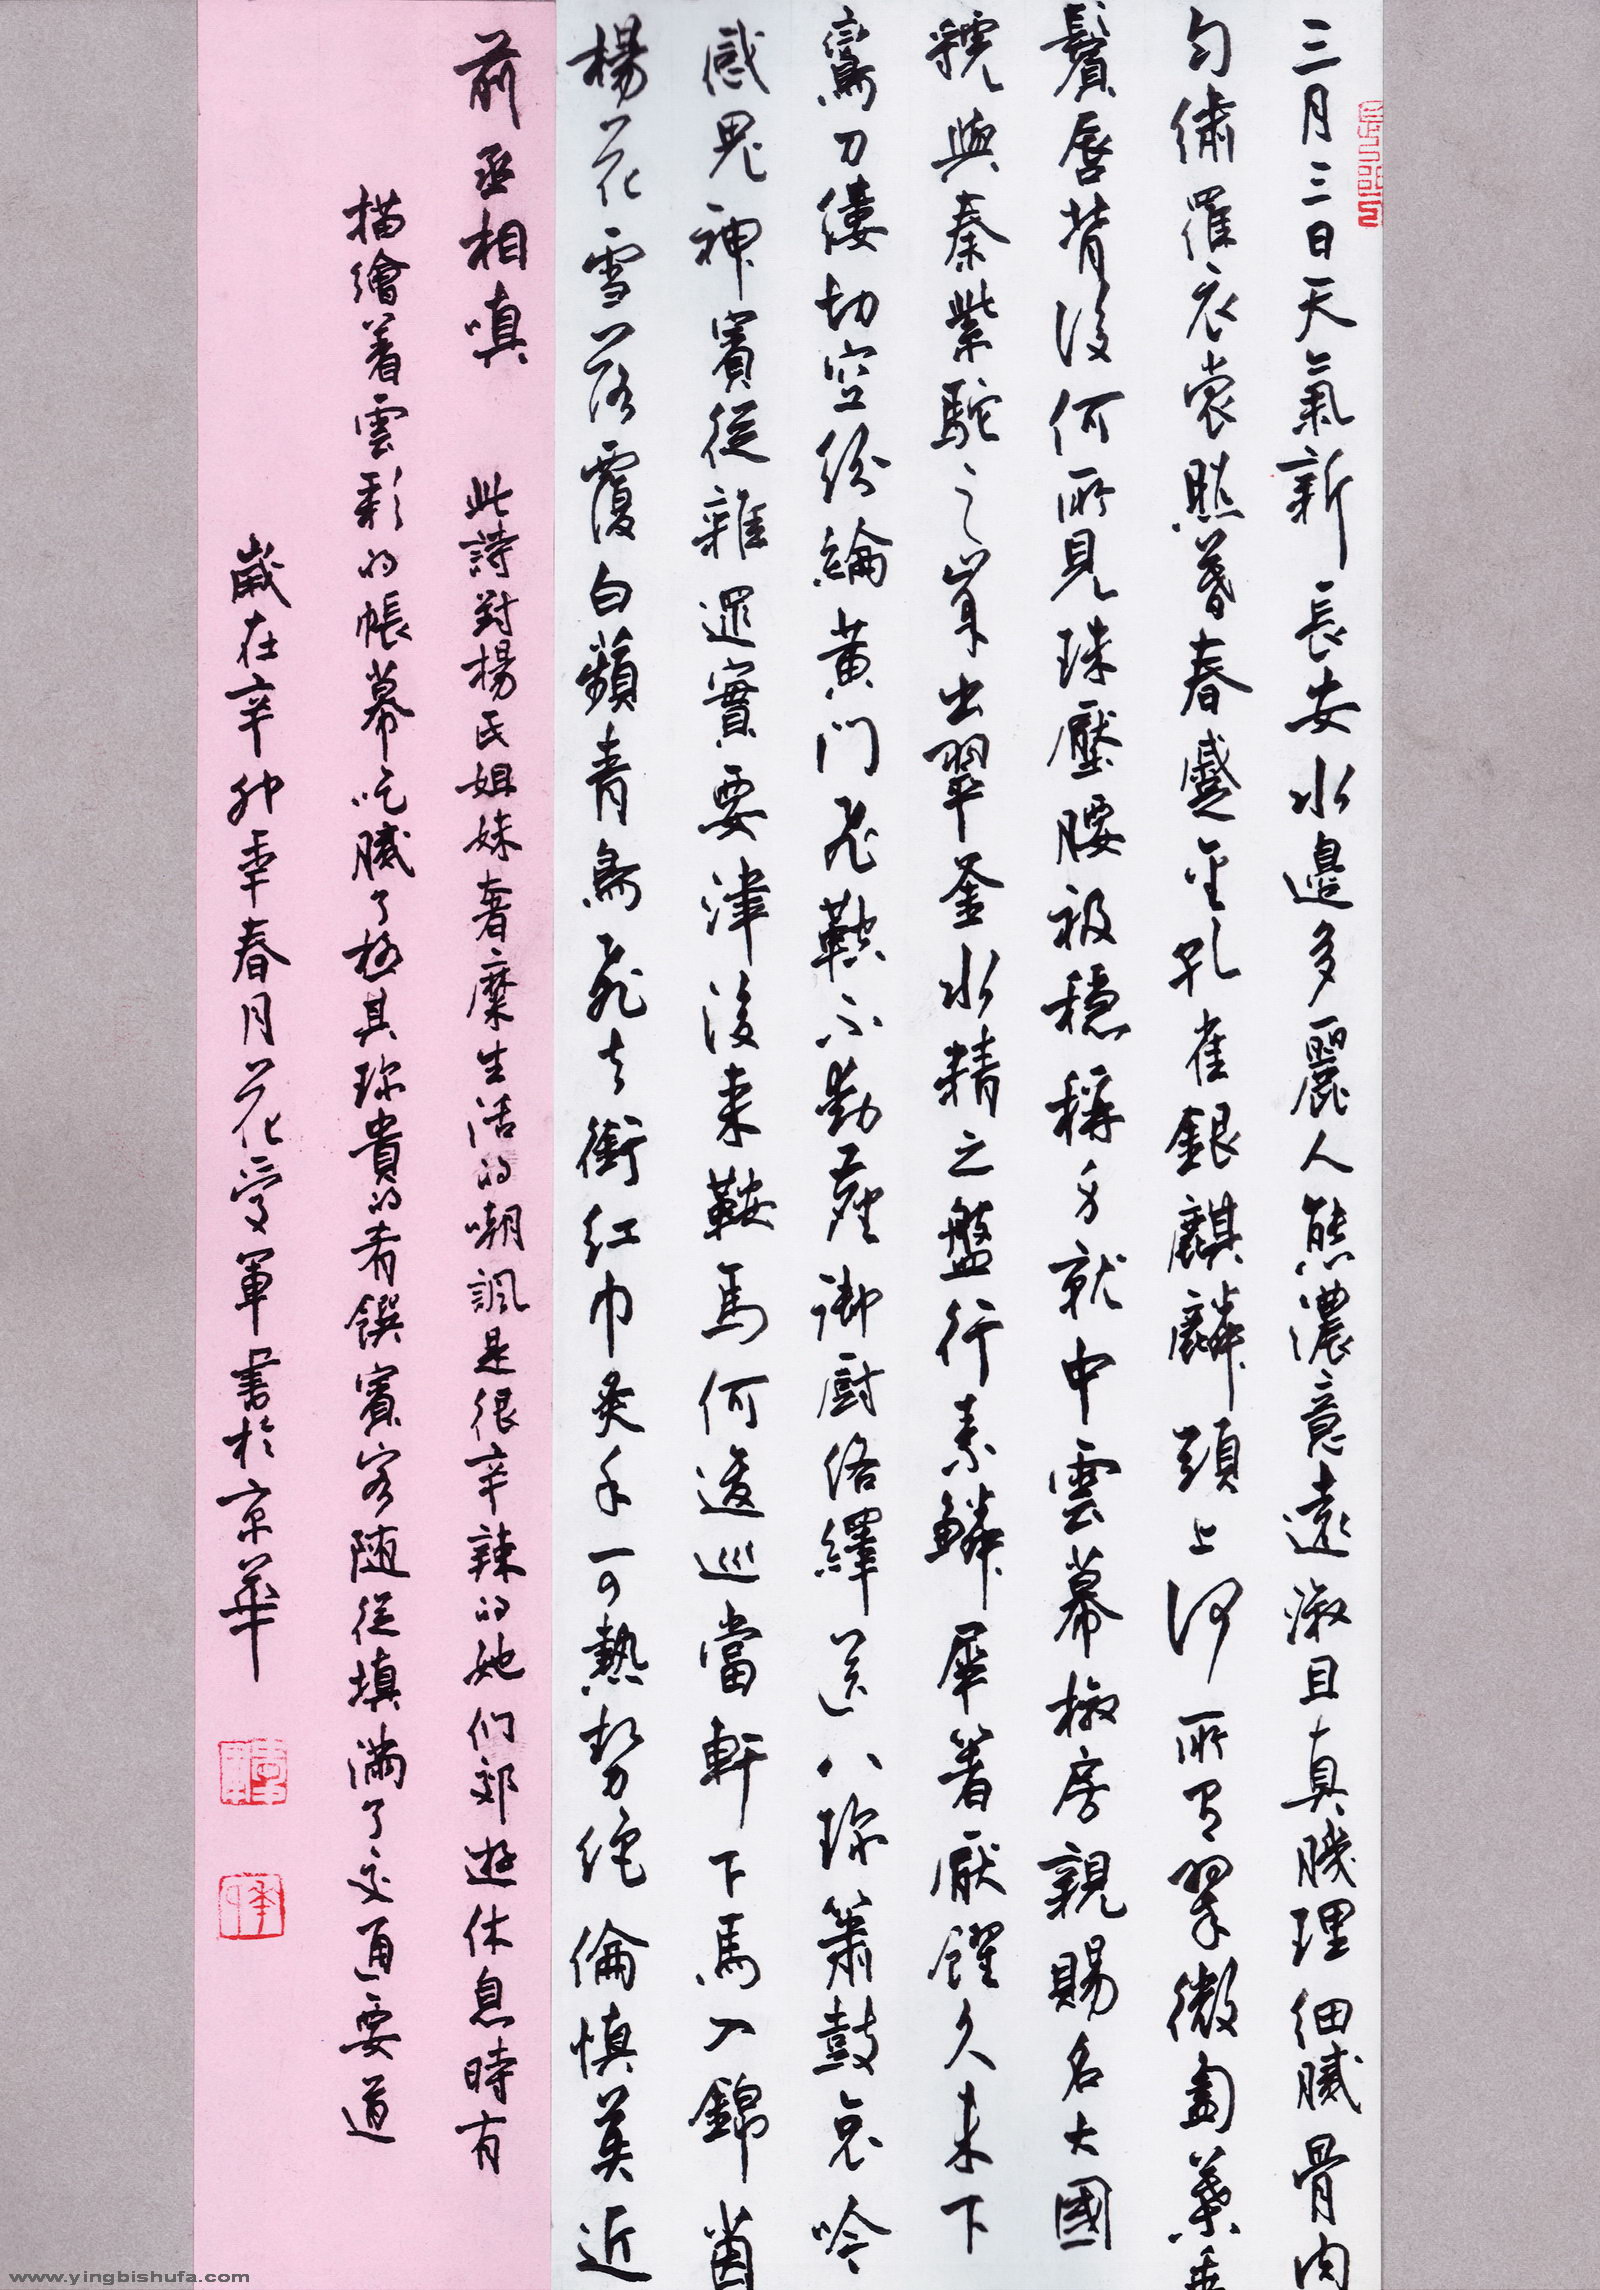 三月三日天氣新長安水邊多麗人態濃意遠淑且真肌理細膩骨肉
勻繡羅衣裳照暮春蹙金孔雀銀麒麟頭上何所有翠微匎葉垂
鬢唇背後何所見珠壓腰衱穩稱身就中雲幕椒房親賜名大國
虢與秦紫駝之峯出翠釜水精之盤行素鱗犀箸厭饜久未下
鸞刀縷切空紛綸黃门飛鞚不動塵御厨络繹送八珍簫鼓哀吟
感鬼神賓從雜遝實要津後来鞍馬何逡巡當軒下馬入錦茵
楊花雪落覆白蘋青鳥飛去銜紅巾炙手可熱勢绝倫慎莫近
前丞相嗔 此詩對楊氏姐妹奢糜生活的嘲諷是很辛辣的她们郊遊休息時有
描繪着雲彩的帳幕吃膩了極其珍貴的肴饌賓客随從填满了交通要道
歲在辛卯年春月花愛軍書於京華
www.yingbishufa.com